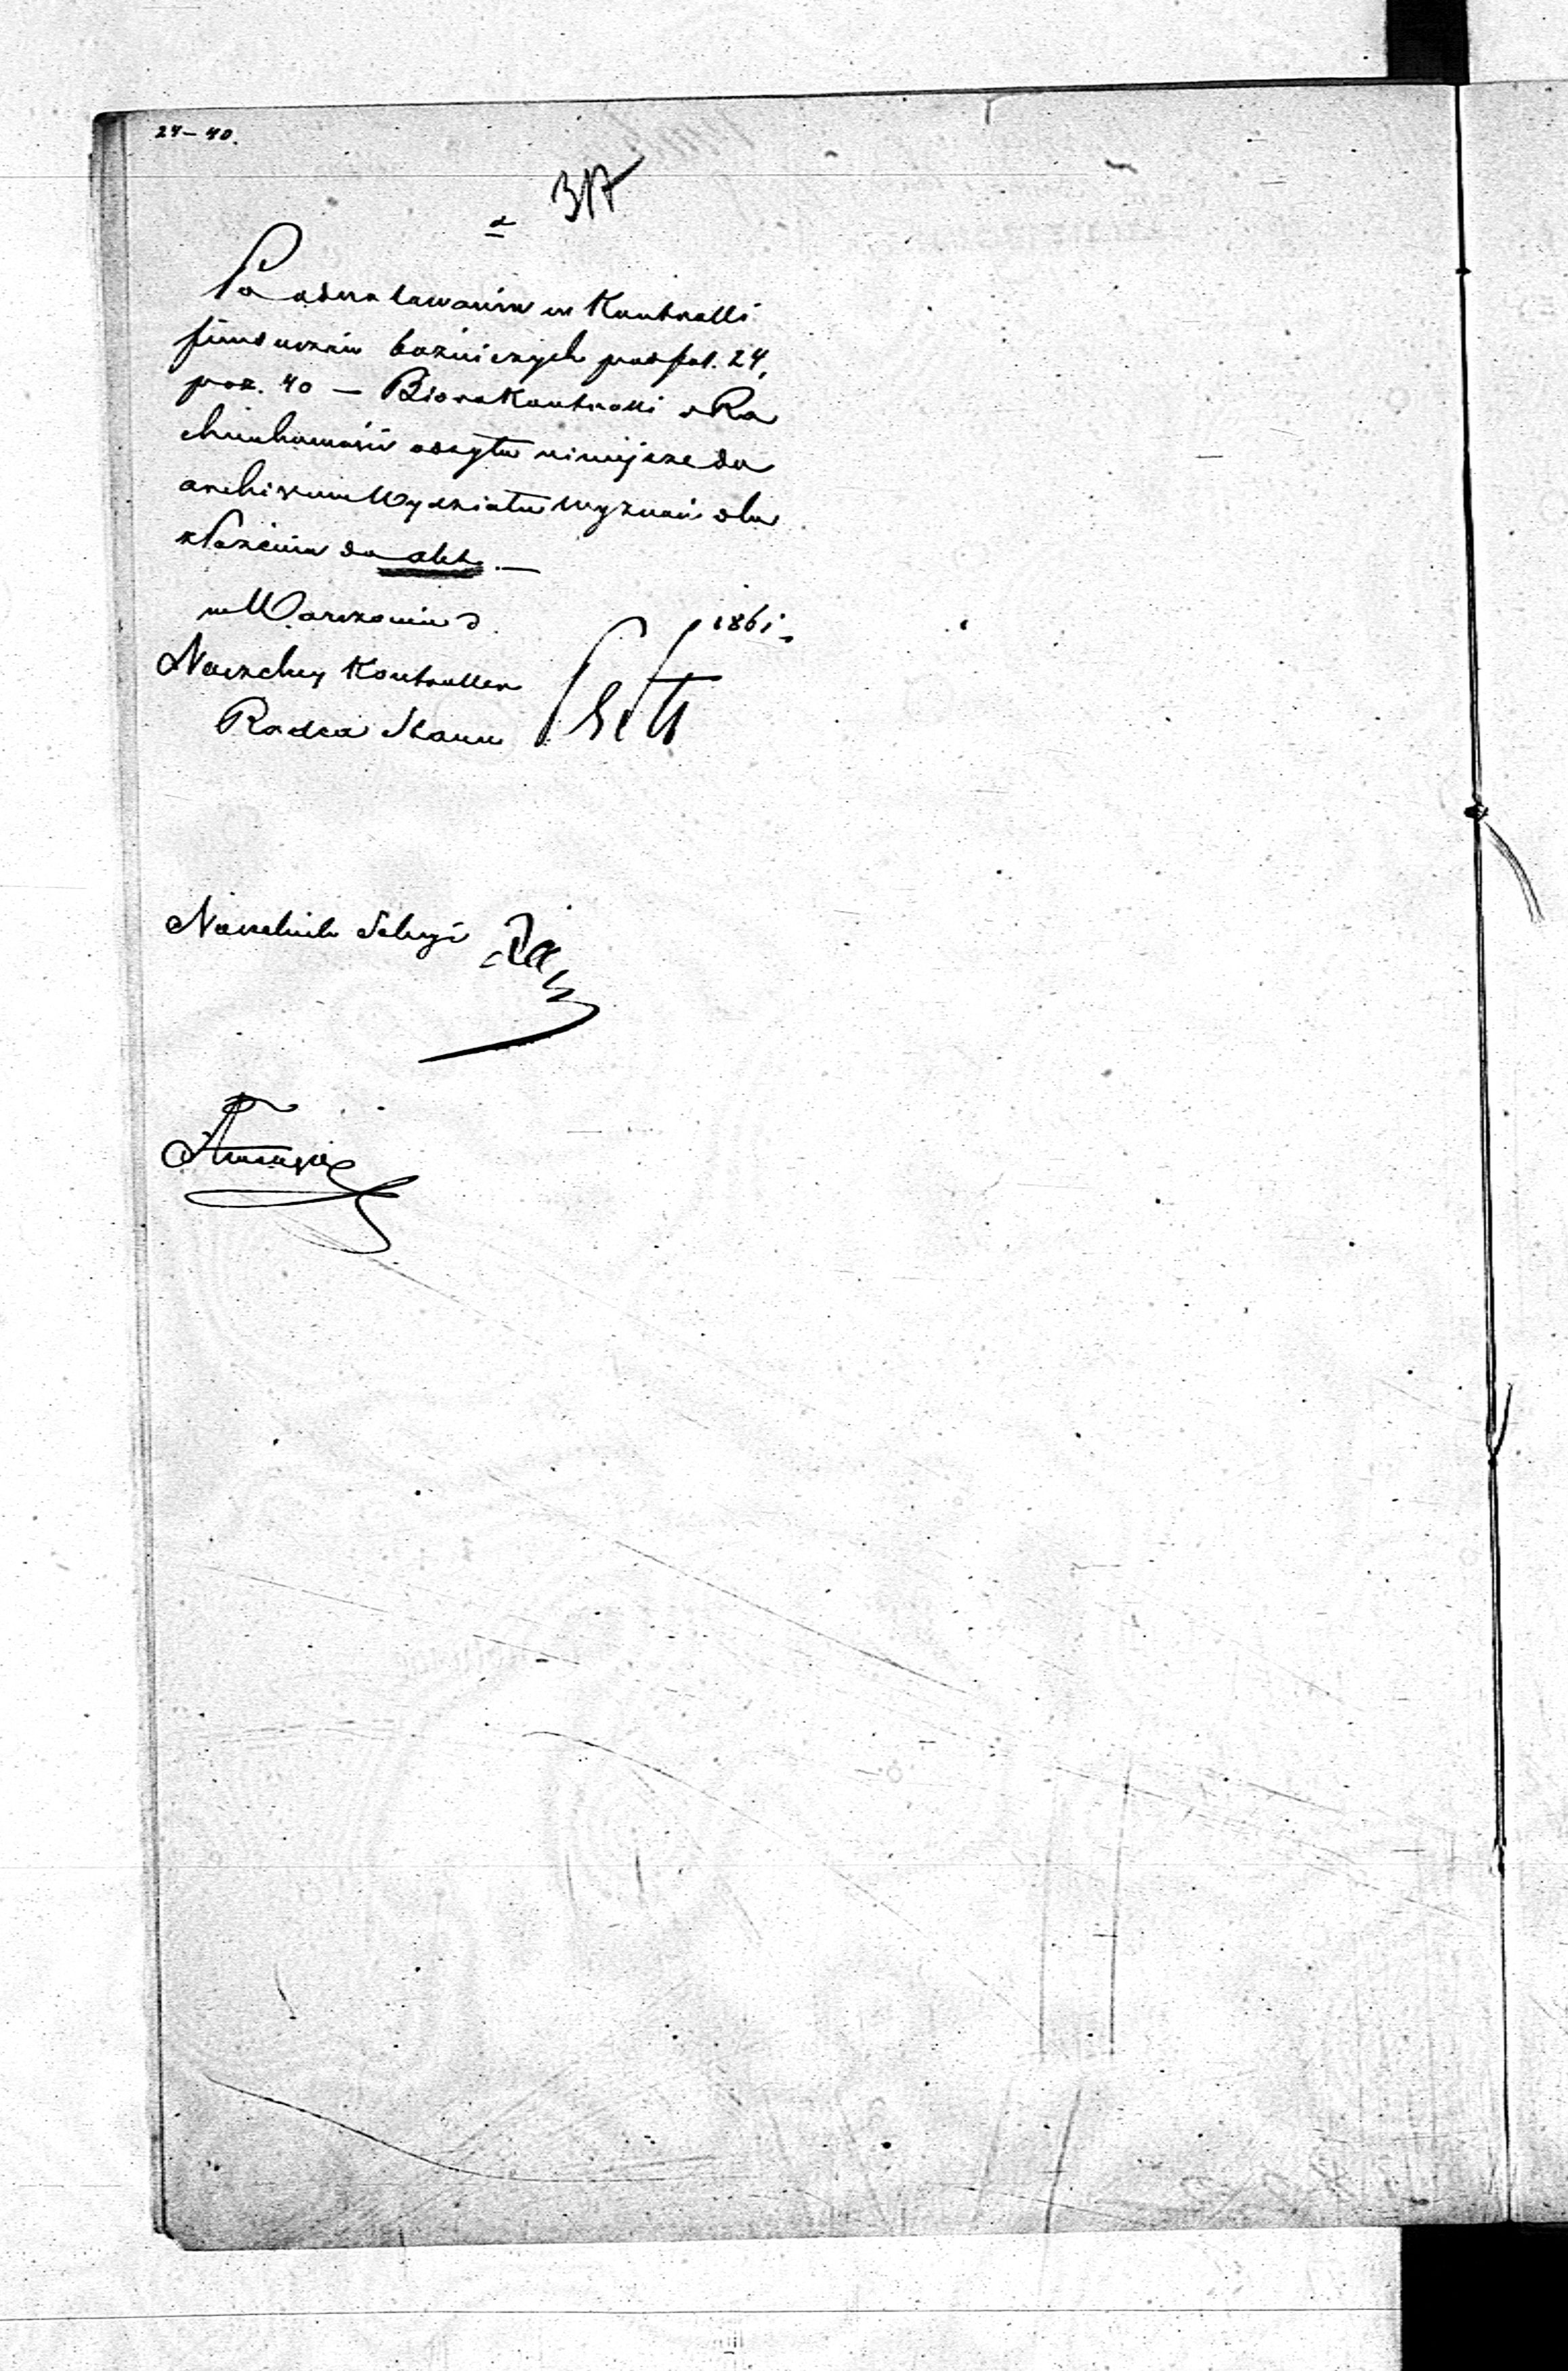 24 – 40.
317
Po odnotowaniu w Kontrolli
funduszów bożniczych pod fol. 24,
poz. 40 — Bióro Kontrolli i Ra
chunkowości odsyła niniejsze do
archiwum Wydziału Wyznań dla
złożenia do akt. —
w Warszawie d. 1861.
Naczelny Kontroller
Radca Stanu
Naczelnik Sekcyi